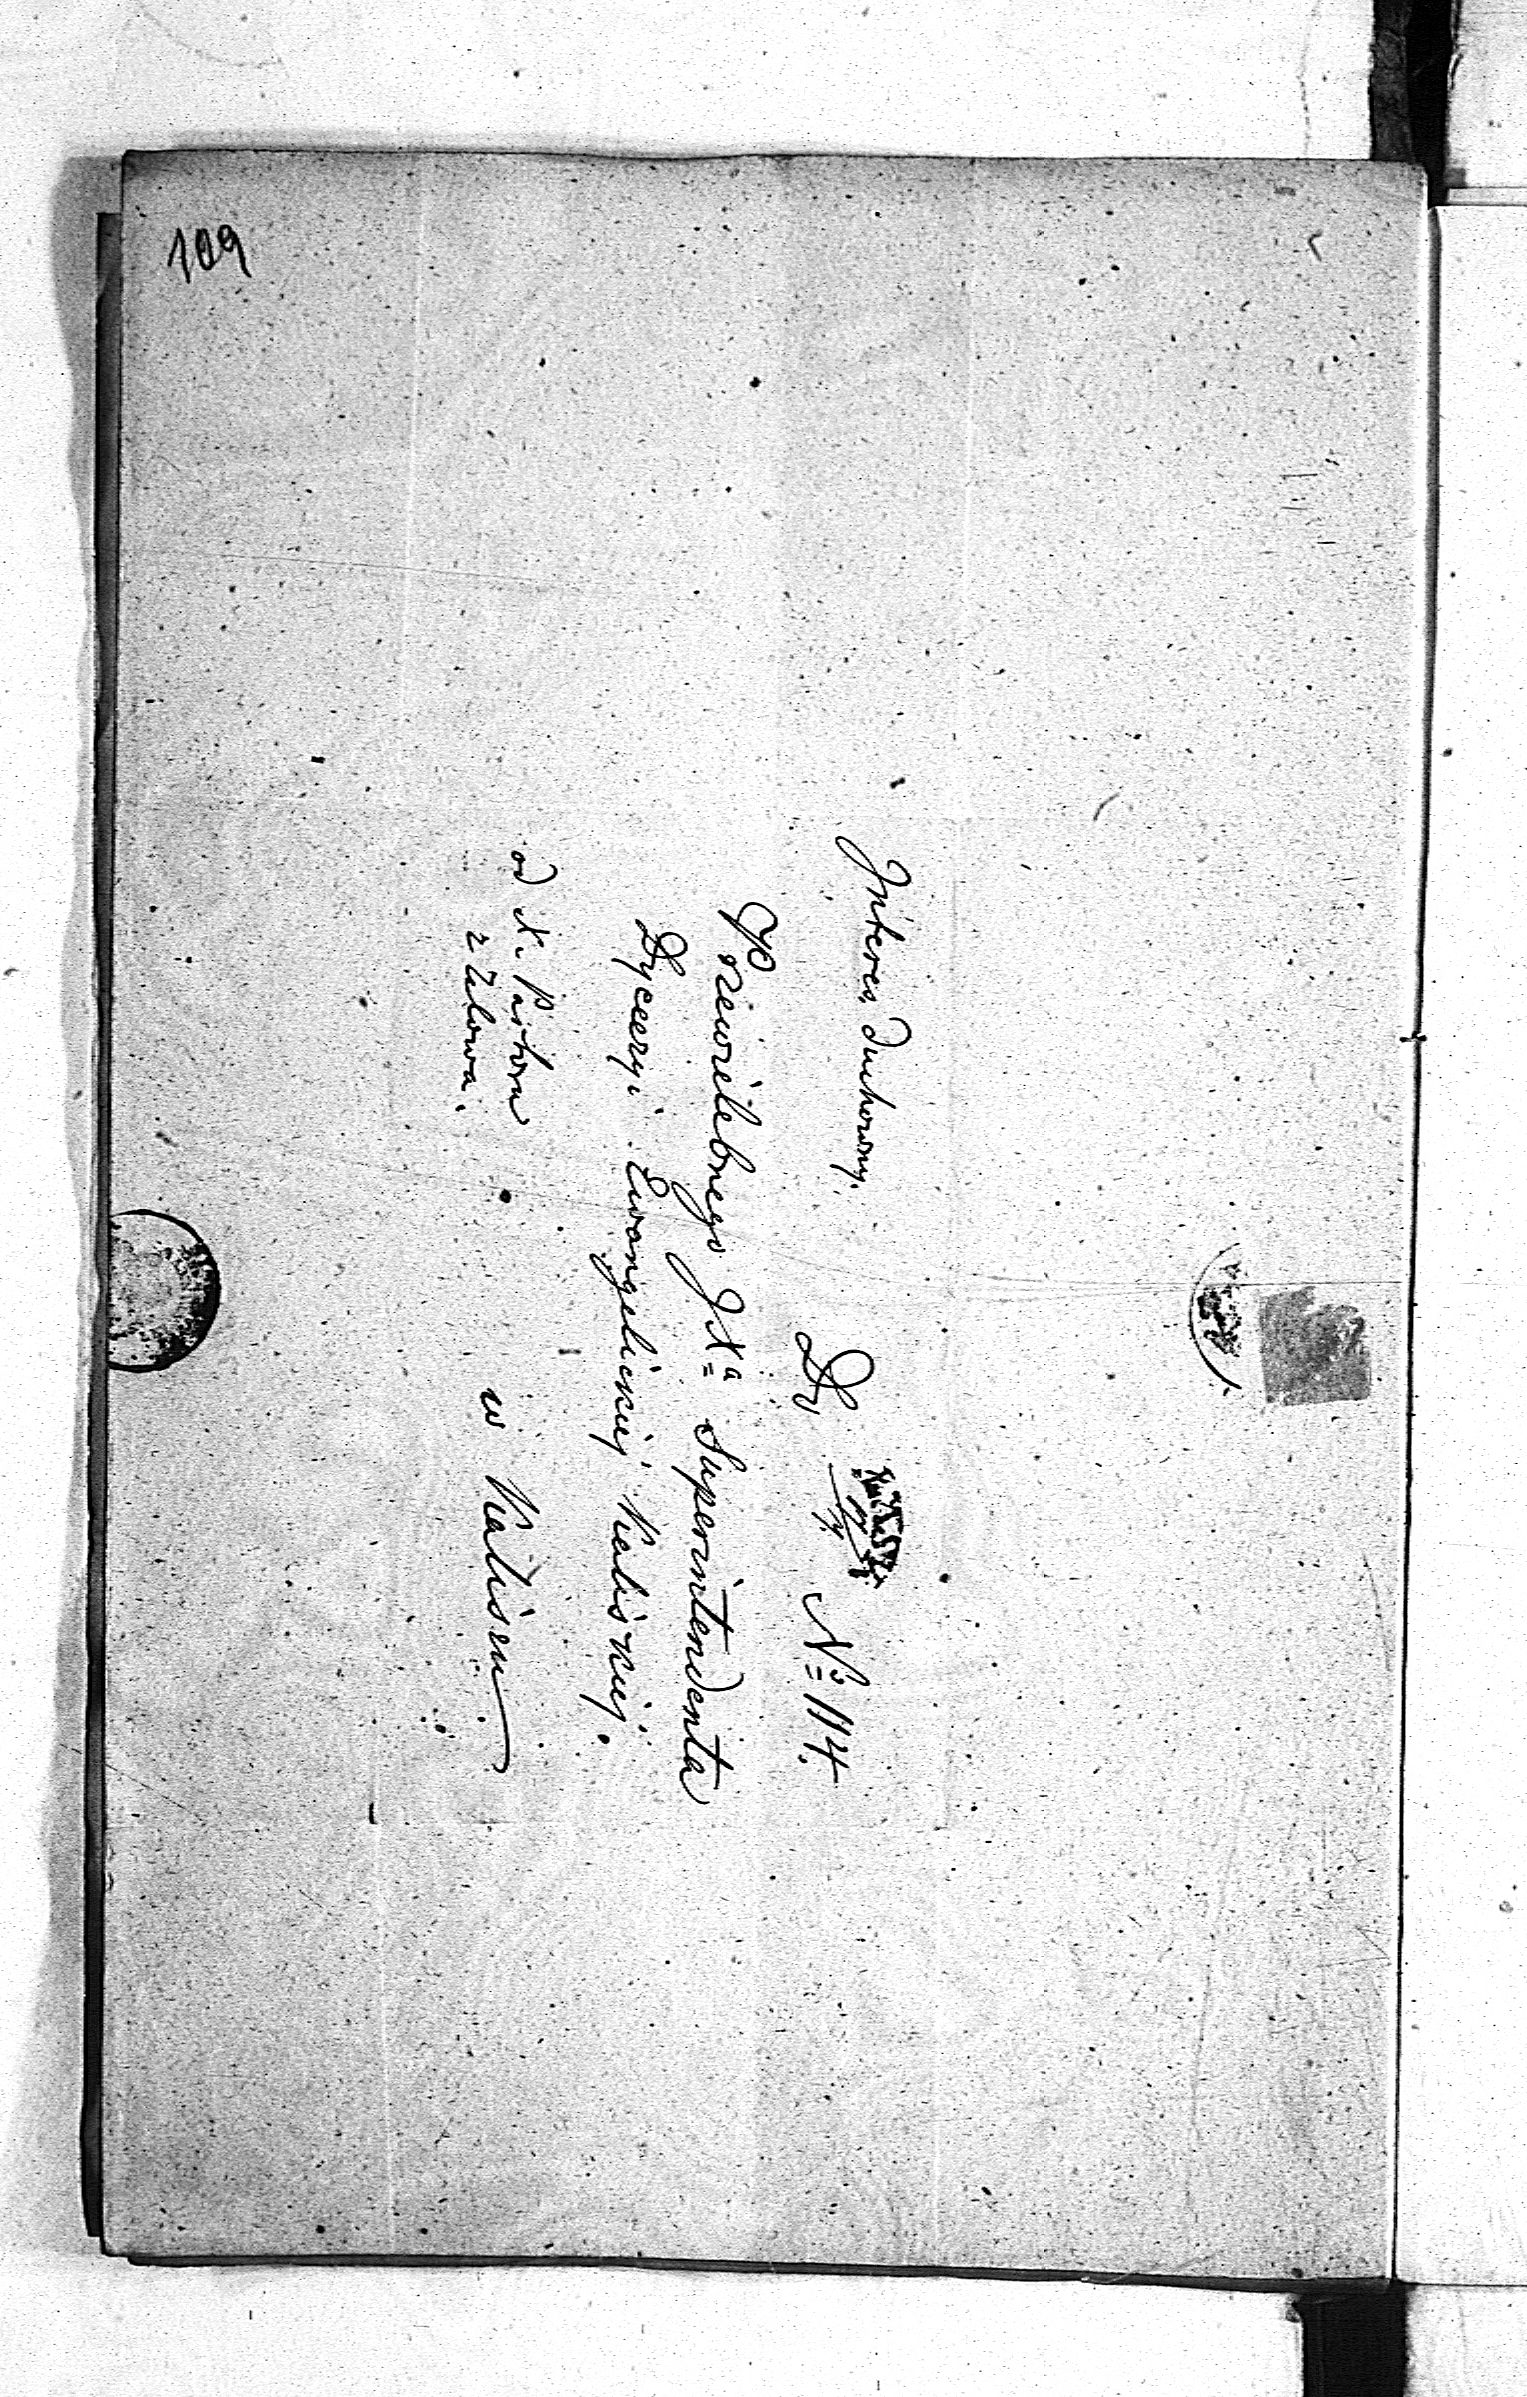 109
Interes duchowny.
Do
No 114.
Przewielebnego JXa Superintendenta
Dyecezyi Ewangelickiej Kaliskiej.
w Kaliszu
od X. Pastora
z Zelowa.